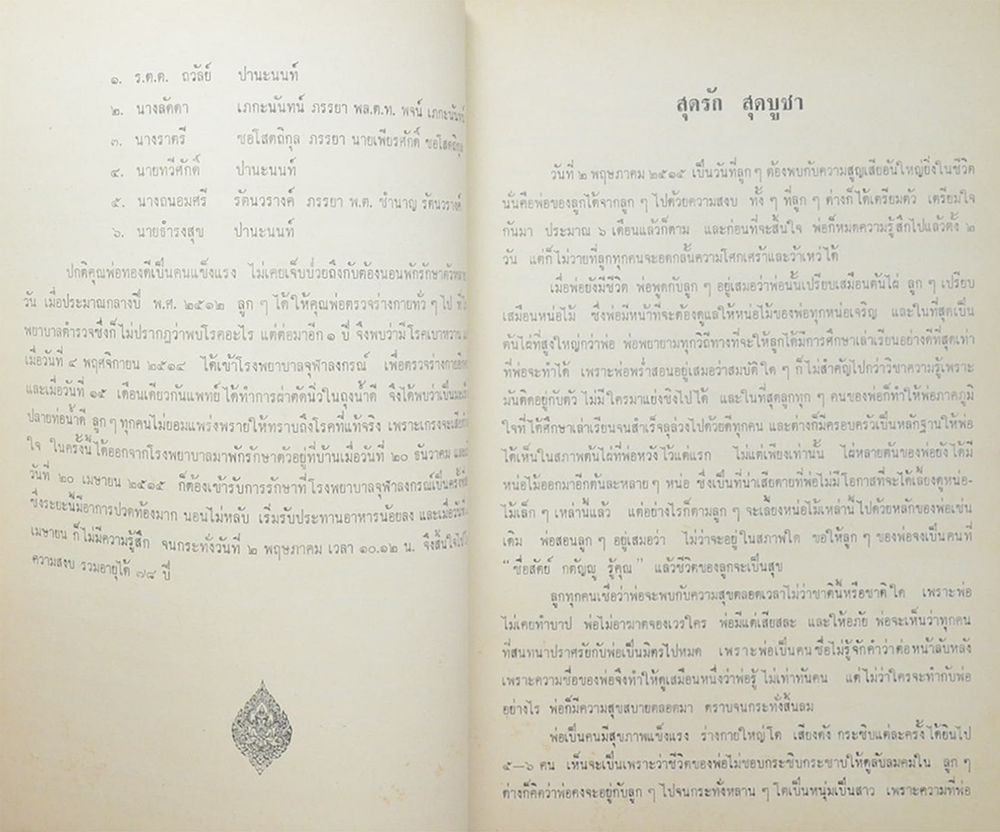 ๑. ร.ต.ต. ถวัลย์ ปานะนนท์
๒. นางลัดดา เภกะนันทน์ ภรรยา พล.ต.ท. พจน์ เภกะนันทน์
๓. นางราตรี ซอโสตถิกุล ภรรยา นายเพียรศักดิ์ ซอโสตถิกุล
๔. นายทวีศักดิ์ ปานะนนท์
๕. นางถนอมศรี รัตนวรางค์ ภรรยา พ.ต. ชำนาญ รัตนวรางค์
๖. นายธำรงสุข ปานะนนท์
ปกติคุณพ่อทองดีเป็นคนแข็งแรง ไม่เคยเจ็บป่วยถึงกับต้องนอนพักรักษาตัวหลาย
วัน เมื่อประมาณกลางปี พ.ศ. ๒๕๑๒ ลูก ๆ ได้ให้คุณพ่อตรวจร่างกายทั่ว ๆ ไป ที่โรง
พยาบาลตำรวจซึ่งก็ไม่ปรากฏว่าพบโรคอะไร แต่ต่อมาอีก ๑ ปี จึงพบว่ามีโรคเบาหวาน
เมื่อวันที่ ๔ พฤศจิกายน ๒๕๑๔ ได้เข้าโรงพยาบาลจุฬาลงกรณ์ เพื่อตรวจร่างกาย
และเมื่อวันที่ ๑๕ เดือนเดียวกันแพทย์ได้ทำการผ่าตัดนิ่วในถุงน้ำดี จึงได้พบว่าเป็นมะเร็ง
ปลายท่อน้ำดี ลูก ๆ ทุกคนไม่ยอมแพร่งพรายให้ทราบถึงโรคที่แท้จริง เพราะเกรงจะเสีย
ใจ ในครั้งนี้ได้ออกจากโรงพยาบาลมาพักรักษาตัวอยู่ที่บ้านเมื่อวันที่ ๒๐ ธันวาคม และ
วันที่ ๒๐ เมษายน ๒๕๑๕ ก็ต้องเข้ารับการรักษาที่โรงพยาบาลจุฬาลงกรณ์เป็นครั้ง
ซึ่งระยะนี้มีอาการปวดท้องมาก นอนไม่หลับ เริ่มรับประทานอาหารน้อยลง และเมื่อวันที่
เมษายน ก็ไม่มีความรู้สึก จนกระทั่งวันที่ ๒ พฤษภาคม เวลา ๑๐.๑๒ น. จึงสิ้นใจไป
ความสงบ รวมอายุได้ ๗๘ ปี
สุดรัก สุดบูชา
วันที่ ๒ พฤษภาคม ๒๕๑๕ เป็นวันที่ลูก ๆ ต้องพบกับความสูญเสียอันใหญ่ยิ่งในชีวิต
นั่นคือพ่อของลูกได้จากลูก ๆ ไปด้วยความสงบ ทั้ง ๆ ที่ลูก ๆ ต่างก็ได้เตรียมตัว เตรียมใจ
กันมา ประมาณ ๖ เดือนแล้วก็ตาม และก่อนที่จะสิ้นใจ พ่อก็หมดความรู้สึกไปแล้วตั้ง ๒
วัน แต่ก็ไม่วายที่ลูกทุกคนจะอดกลั้นความโศกเศร้าและว้าเหว่ได้
เมื่อพ่อยังมีชีวิต พ่อพูดกับลูก ๆ อยู่เสมอว่าพ่อนั้นเปรียบเสมือนต้นไผ่ ลูก ๆ เปรียบ
เสมือนหน่อไม้ ซึ่งพ่อมีหน้าที่จะต้องดูแลให้หน่อไม้ของพ่อทุกหน่อเจริญ และในที่สุดเป็น
ต้นไผ่ที่สูงใหญ่กว่าพ่อ พ่อพยายามทุกวิถีทางที่จะให้ลูกได้มีการศึกษาเล่าเรียนอย่างดีที่สุดเท่า
ที่พ่อจะทำได้ เพราะพ่อพร่ำสอนอยู่เสมอว่าสมบัติใด ๆ ก็ไม่สำคัญไปกว่าวิชาความรู้เพราะ
มันติดอยู่กับตัว ไม่มีใครมาแย่งชิงไปได้ และในที่สุดลูกทุก ๆ คนของพ่อก็ทำให้พ่อภาคภูมิ
ใจที่ได้ศึกษาเล่าเรียนจนสำเร็จลุล่วงไปด้วยดีทุกคน และต่างก็มีครอบครัวเป็นหลักฐานให้พ่อ
ได้เห็นในสภาพต้นไผ่ที่พ่อหวังไว้แต่แรก ไม่แต่เพียงเท่านั้น ไผ่หลายต้นของพ่อยังได้มี
หน่อไม้ออกมาอีกต้นละหลาย ๆ หน่อ ซึ่งเป็นที่น่าเสียดายที่พ่อไม่มีโอกาสที่จะได้เลี้ยงดูหน่อ-
ไม้เล็ก ๆ เหล่านี้แล้ว แต่อย่างไรก็ตามลูก ๆ จะเลี้ยงหน่อไม้เหล่านี้ไปด้วยหลักของพ่อเช่น
เดิม พ่อสอนลูก ๆ อยู่เสมอว่า ไม่ว่าจะอยู่ในสภาพใด ขอให้ลูก ๆ ของพ่อจงเป็นคนที่
“ซื่อสัตย์ กตัญญู รู้คุณ” แล้วชีวิตของลูกจะเป็นสุข
ลูกทุกคนเชื่อว่าพ่อจะพบกับความสุขตลอดเวลาไม่ว่าชาตินี้หรือชาติใด เพราะพ่อ
ไม่เคยทำบาป พ่อไม่อาฆาตจองเวรใคร พ่อมีแต่เสียสละ และให้อภัย พ่อจะเห็นว่าทุกคน
ที่สนทนาปราศรัยกับพ่อเป็นมิตรไปหมด เพราะพ่อเป็นคนซื่อไม่รู้จักคำว่าต่อหน้าลับหลัง
เพราะความซื่อของพ่อจึงทำให้ดูเสมือนหนึ่งว่าพ่อรู้ไม่เท่าทันคน แต่ไม่ว่าใครจะทำกับพ่อ
อย่างไร พ่อก็มีความสุขสบายตลอดมา ตราบจนกระทั่งสิ้นลม
พ่อเป็นคนมีสุขภาพแข็งแรง ร่างกายใหญ่โต เสียงดัง กระซิบแต่ละครั้งได้ยินไป
๕—๖ คน เห็นจะเป็นเพราะว่าชีวิตของพ่อไม่ชอบกระซิบกระซาบให้ดูลับลมคมใน ลูก ๆ
ต่างก็คิดว่าพ่อคงจะอยู่กับลูก ๆ ไปจนกระทั่งหลาน ๆ โตเป็นหนุ่มเป็นสาว เพราะความที่พ่อ